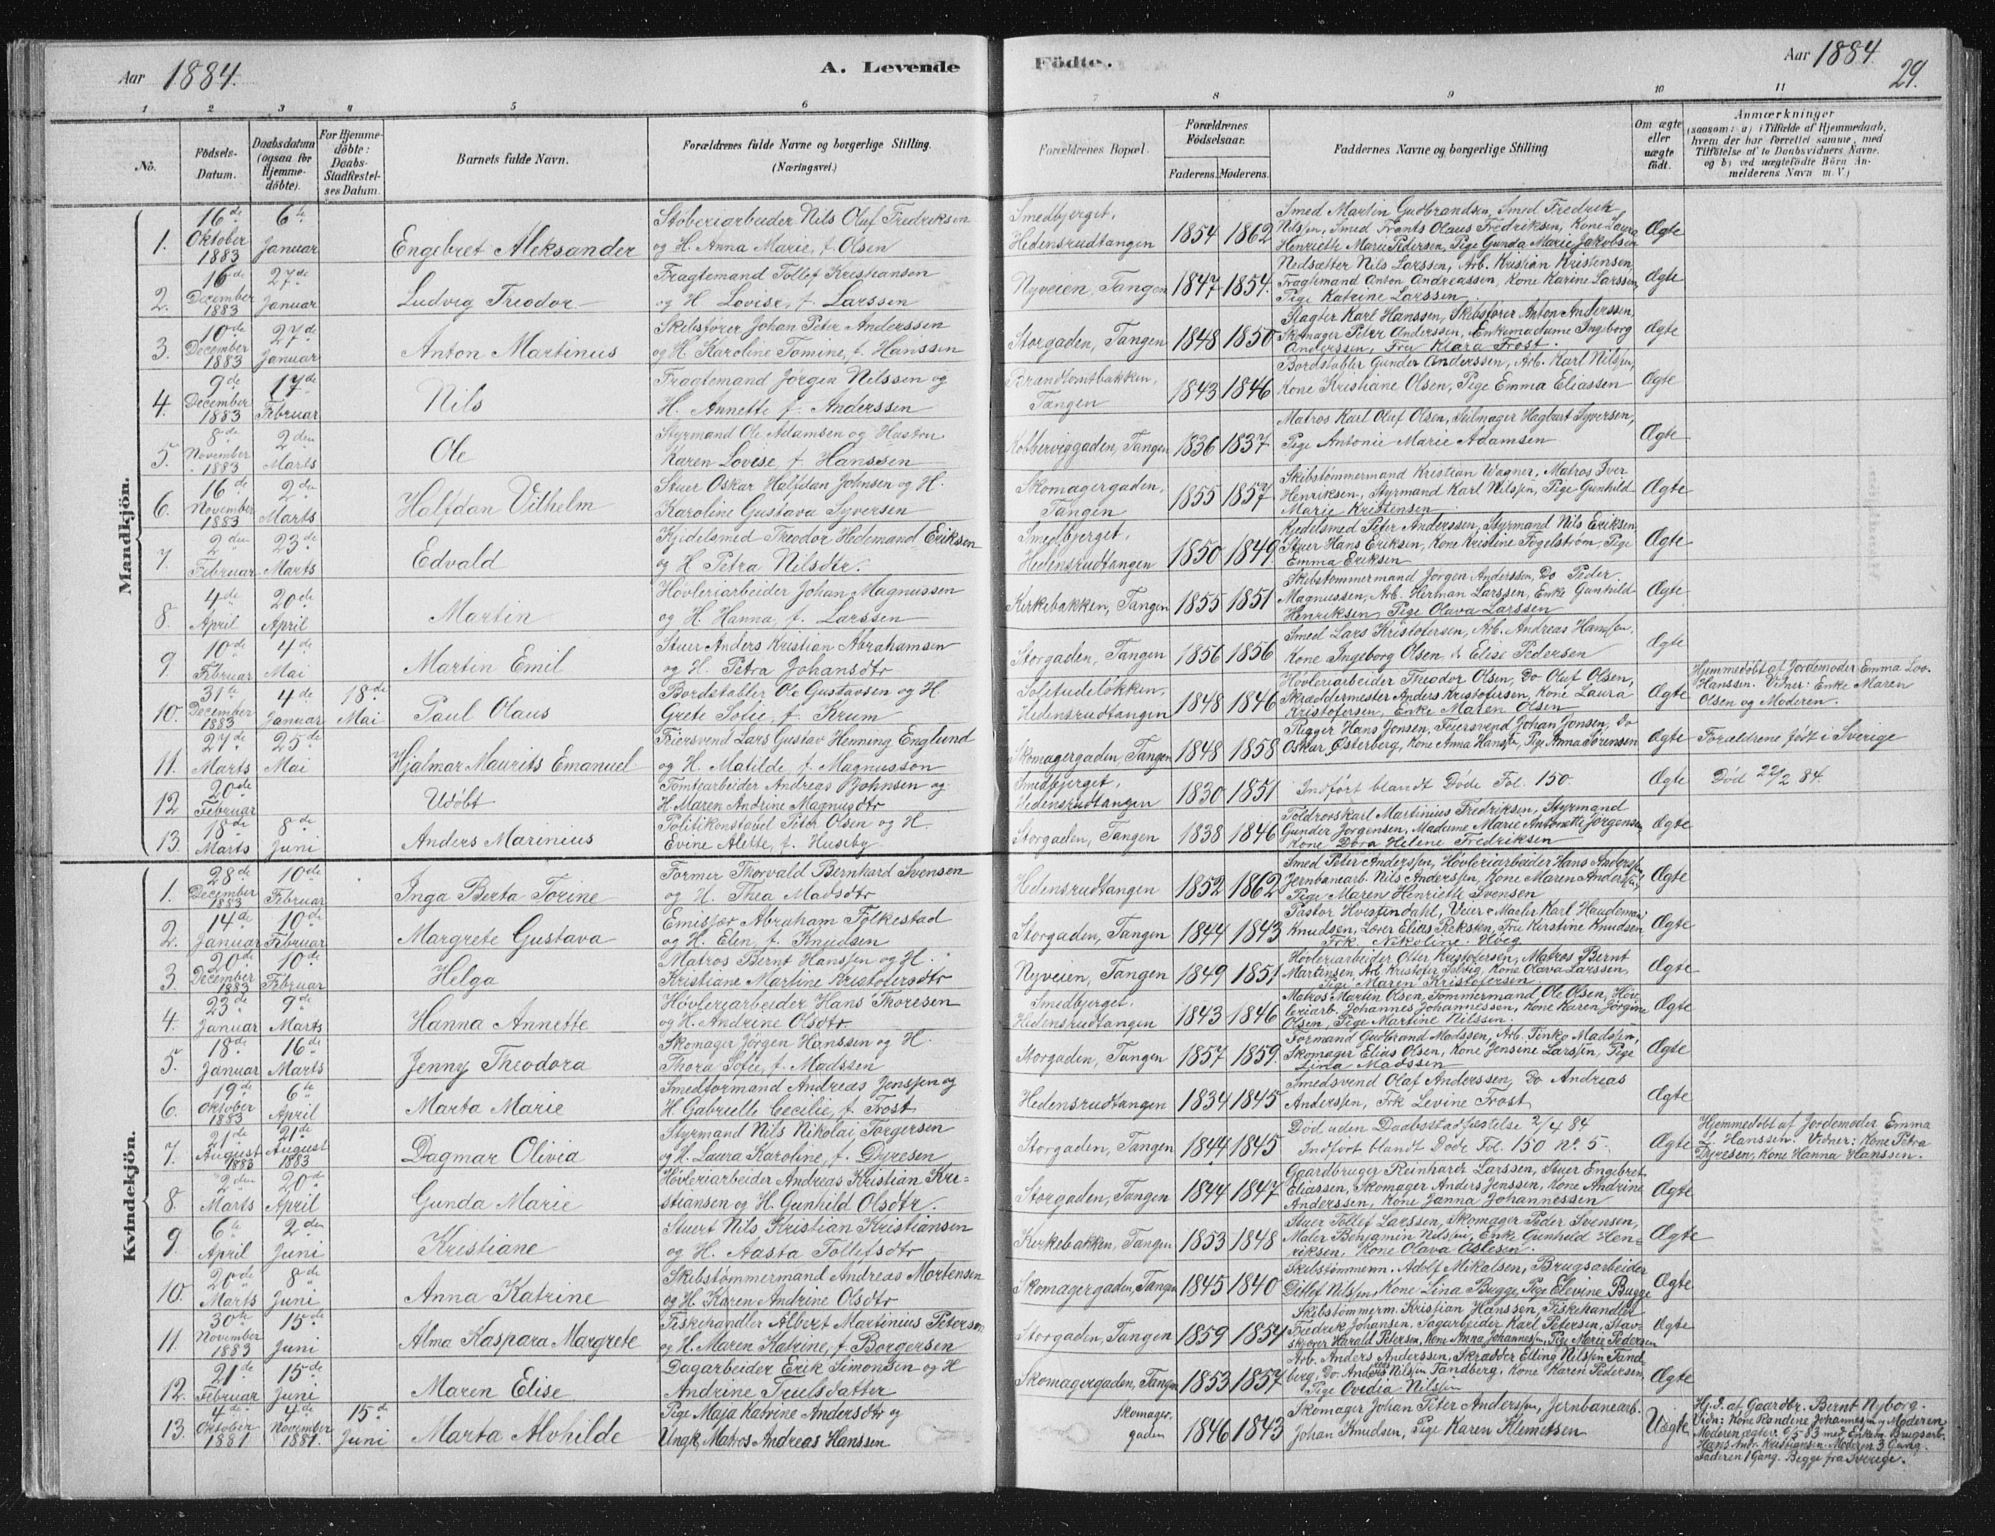 Aar 1884. A. Levende Födte. Aar 1884 29.
1 2 3 4 5 6 7 8 9 10 11
No. Födsels-Datum. Daabsdatum (ogsaa for Hjemmedöbte). For Hjemmedöbte: Daabs-Stadfæstelses Datum. Barnets fulde Navn. Forældrenes fulde Navne og borgerlige Stilling. (Næringsvei.) Forældrenes Bopæl. Forældrenes Födselsaar. Faderens. Moderens. Faddernes Navne og borgerlige Stilling Om ægte eller uægte födt. Anmærkninger (saasom: a) i Tilfælde af Hjemmedaab, hvem der har forrettet samme, med Tilföielse af to Daabsvidners Navne. og b) ved uægtefödte Börn Anmelderens Navn m. V.)
Mandkjön.
1. 16de Oktober 1883 6te Januar Engebret Aleksander Støberiarbeider Nils Oluf Fredriksen og H. Anna Marie, f. Olsen Smedbjerget, Hedensrudtangen 1854 1862 Smed Martin Gudbrandsen, Smed Fredrik Nilssen, Smed Frants Olaus Fredriksen, Kone Laura Henriette Marie Pedersen, Pige Gunda Marie Jakobsen Ægte
2. 16de December 1883 27de Januar Ludvig Theodor Fragtemand Tollef Kristiansen og H. Lovise, f. Larssen Nyveien, Tangen 1847 1854. Nedsætter Nils Larssen, Arb. Kristian Kristensen, Fragtemand Anton Andreassen, Kone Karine Larssen, Pige Katrine Larssen Ægte
3. 10de December 1883 27de Januar Anton Martinus Skibsfører Johan Peter Anderssen og H. Karoline Tomine, f. Hanssen Storgaden, Tangen 1848 1850 Slagter Karl Hanssen, Skibsfører Anton Anderssen, Skomager Peter Anderssen, Enkemadame Ingeborg Anderssen, Fru Klara Frost. Ægte
4. 9de December 1883 17de Februar Nils Fragtemand Jørgen Nilssen og H. Annette f. Anderssen Brandtomtbakken, Tangen 1843 1846 Bordstabler Gunder Anderssen, Arb. Karl Nilssen, Kone Kristiane Olsen, Pige Emma Eliassen Ægte
5. 8de November 1883 2den Marts Ole Styrmand Ole Adamsen og Hustru Karen Lovise, f. Hanssen Kobberviggaden, Tangen 1836 1837 Matros Karl Oluf Olsen, Seilmager Hagbart Syversen, Pige Antonie Marie Adamsen Ægte
6. 16de November 1883 2den Marts Halfdan Vilhelm Stuer Oskar Halfdan Johnsen og H. Karoline Gustava Syversen Skomagergaden, Tangen 1855 1857 Skibstømmermand Kristian Wagner, Matros Iver Henriksen, Styrmand Karl Nilssen, Pige Gunhild Marie Kristensen Ægte
7. 2den Februar 23de Marts Edvald Kjedelsmed Theodor Hedemand Eriksen og H Petra Nilsdtr. Smedbjerget, Hedensrudtangen 1850 1849. Kjedelsmed Peter Anderssen, Styrmand Nils Eriksen, Stuer Hans Eriksen, Kone Kristine Fogelstrøm, Pige Emma Eriksen Ægte
8. 4de April 20de April Martin Høvleriarbeider Johan Magnussen og H. Hanna, f. Larssen Kirkebakken, Tangen 1855 1851 Skibstømmermand Jørgen Anderssen, Do Peder Magnussen, Arb. Herman Larssen, Enke Gunhild Henriksen, Pige Olava Larssen Ægte
9. 10de Februar 4de Mai Martin Emil Stuer Anders Kristian Abrahamsen og H. Petra Johansdtr Storgaden, Tangen 1856 1856 Smed Lars Kristofersen, Arb. Andreas Hanssen, Kone Ingeborg Olsen, Elise Pedersen Ægte
10. 31te December 1883 4de Januar 18de Mai Paul Olaus Bordstabler Ole Gustavsen og H. Grete Sofie, f. Krum Solitudeløkken, Hedensrudtangen 1848 1846 Høvleriarbeider Theodor Olsen, Do Oluf Olsen, Skræddermester Anders Kristofersen, Kone Laura Kristofersen, Enke Maren Olsen Ægte Hjemmedøbt af Jordemoder Emma Hanssen. Vidner: Enke Maren Olsen og Moderen.
11. 27de Marts 25de Mai Hjalmar Maurits Emanuel Feiersvend Lars Gustav Henning Englund og H. Matilde f. Magnusson Skomagergaden, Tangen 1848 1858 Rigger Hans Jonsen, Feiersvend Johan Jonsen, Do Oskar Østerberg, Kone Anna Hanssen, Pige Anna Sørensen Ægte Forældrene født i Sverige
12 20de Februar Udøbt Tomtearbeider Andreas Johnsen og H. Maren Andrine Magnusdtr Smedbjerget, Hedensrudtangen 1830 1851 Indført blandt Døde Fol. 150 Ægte Død 22/2 84
13. 18de Marts 8de Juni Anders Marinius Politikonstabel Peter Olsen og H. Evine Alette, f. Huseby Storgaden, Tangen 1838 1846 Toldrorskarl Martinius Fredriksen, Styrmand Gunder Jørgensen, Madame Marie Antonette Jørgensen, Kone Dora Helene Fredriksen Ægte
Kvindekjön.
1. 28de December 1883 10de Februar Inga Berta Torine Former Thorvald Bernhard Svensen og H. Thea Madsdtr Hedensrudtangen 1852 1862 Smed Peter Anderssen, Høvleriarbeider Hans Anderssen, Jernbanearb. Nils Anderssen, Kone Maren Anderssen, Pige Maren Henriette Svensen Ægte
2. 14de Januar 10de Februar Margrete Gustava Emissær Abraham Folkestad og H. Elen, f. Knudsen Storgaden, Tangen 1844 1843 Pastor Hvistendahl, Veier & Maaler Karl Haudeman Knudsen, Lærer Elias Reksten, Fru Kirstine Knudsen, Frk. Nikoline Høeg Ægte
3. 20de December 1883 10de Februar Helga Matros Bernt Hanssen og H. Kristiane Martine Kristofersdtr Nyveien, Tangen 1849 1851 Høvleriarbeider Olter Kristofersen, Matros Bernt Martinsen, Arb Kristofer Solvig, Kone Olava Larssen, Pige Maren Kristofersen Ægte
4. 23de Januar 9de Marts Hanna Annette Høvleriarbeider Hans Thoresen og H. Andrine Olsdtr. Smedbjerget, Hedensrudtangen 1843 1846 Matros Martin Olsen, Tømmermand Ole Olsen, Høvleriarb. Johannes Johannessen, Kone Karen Jørgine Olsen, Pige Martine Nilssen. Ægte
5. 18de Januar 16de Marts Jenny Theodora Skomager Jørgen Hanssen og H. Thora Sofie, f. Madssen Storgaden, Tangen 1857 1859. Formand Gudbrand Madssen, Arb. Tinko Madssen, Skomager Elias Olsen, Kone Jensine Larssen, Pige Lina Madssen Ægte
6. 19de Oktober 1883 6te April Marta Marie Smedformand Andreas Jenssen og H. Gabrielle Cecilie, f. Frost Hedensrudtangen 1834 1845 Smedsvend Olaf Anderssen, Do Andreas Anderssen, Frk Levine Frost Ægte
7. 21de August 1883 21de August 1883 Dagmar Olivia Styrmand Nils Nikolai Torgersen og H. Laura Karoline, f. Dyresen Storgaden, Tangen 1844 1845 Død uden Daabsstadfæstelse 2/4 84 Indført blandt Døde Fol. 150 No 5. Ægte Hjemmedøbt af Jordemoder Emma Hanssen. Vidner: Kone Petra Dyresen, Kone Hanna Hanssen.
8. 2den Marts 20de April Gunda Marie Høvleriarbeider Andreas Kristian Kristiansen og H. Gunhild Olsdtr. Storgaden, Tangen 1844 1847 Gaardbruger Reinhardt Larssen, Stuer Engebret Eliassen, Skomager Anders Jenssen, Kone Andrine Anderssen, Kone Janna Johannessen Ægte
9. 6te April 2den Juni Kristiane Stuert Nils Kristian Kristiansen og H. Aasta Tollefsdtr Kirkebakken, Tangen 1853 1848 Stuer Tollef Larssen, Skomager Peder Svensen, Maler Benjamin Nilssen, Enke Gunhild Henriksen, Kone Olava Aslesen. Ægte
10. 20de Marts 8de Juni Anna Katrine Skibstømmermand Andreas Mortensen og H. Karen Andrine Olsdtr Skomagergaden, Tangen 1845 1840 Skibstømmerm. Adolf Mikalsen, Brugsarbeider Detlef Nilssen, Kone Lina Bugge, Pige Elevine Bugge Ægte
11. 30te November 1883 15de Juni Alma Kaspara Margrete Fiskehandler Albert Martinius Petersen og H. Maren Katrine, f Borgersen Storgaden, Tangen 1859 1854 Skibstømmerm. Kristian Hanssen, Fiskehandler Fredrik Johansen, Sagarbeider Karl Petersen, Stavskjører Harald Petersen, Kone Anna Johannessen, Pige Marie Pedersen Ægte
12. 21de Februar 15de Juni Maren Elise Dagarbeider Erik Simonsen og H Andrine Trulsdatter Skomagergaden, Tangen 1853 1857 Arb. Anders Anderssen, Skrædder Elling Nilssen Tandberg, Do Anders Nilssen Tandberg, Kone Karen Pedersen, Pige Ovidia Nilssen Ægte
13. 4de Oktober 1881 4de November 1881. 15de Juni Marta Alvhilde Pige Maja Katrine Andersdtr og Ungk. Matros Andreas Hanssen Skomagergaden 1846 1843 Skomager Johan Peter Anderssen, Jernbanearb. Johan Knudsen, Pige Karen Klemetsen Uægte Hj. d. af Gaardbr. Bernt Nyborg. Vidn: Kone Randine Johannessen, Moderen Moderen ægtev. 6/5 83 med Enkem. Brugsarb. Hans Andr. Kristiansen. Moderen 3 Gang. Faderen 1 Gang. Begge fra Sverige.